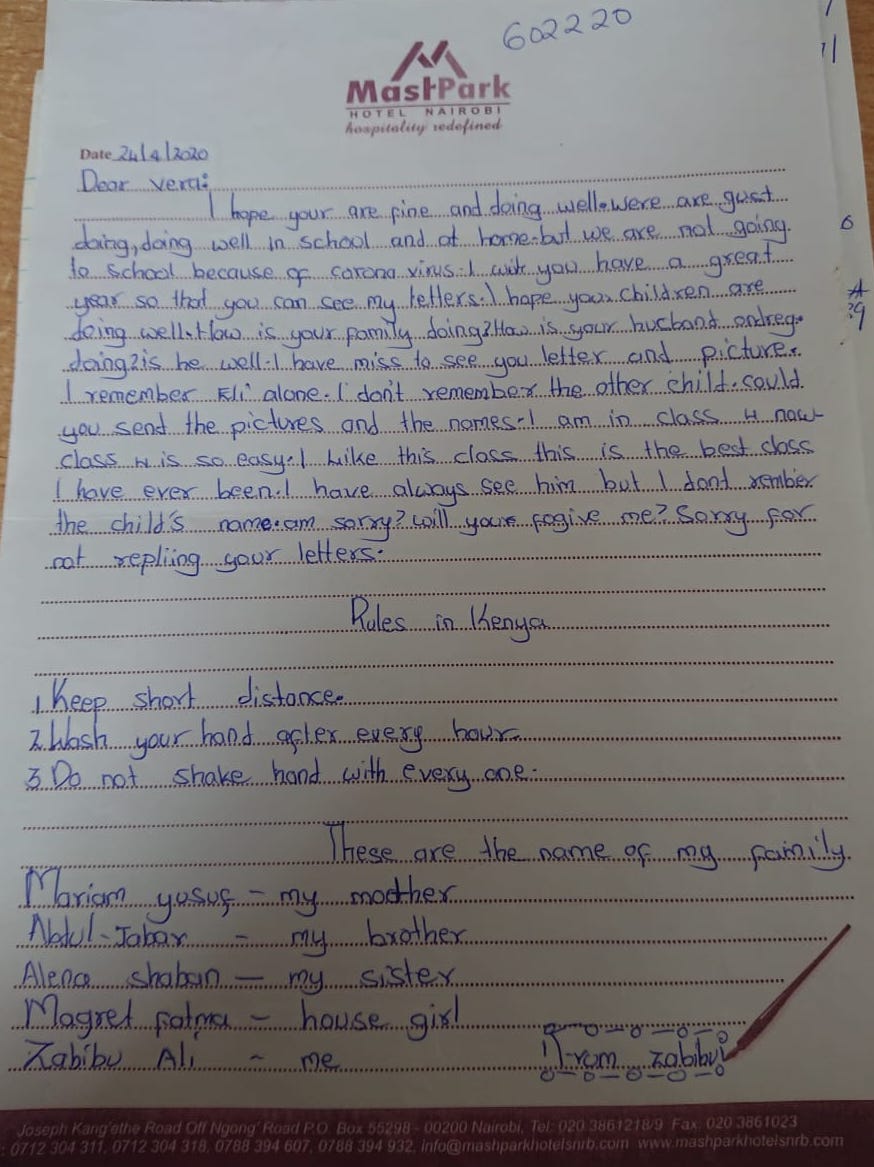 602220
MashPark
HOTEL NAIROBI
hospitality redefined
Date 24/4/2020
Dear vera:
I hope your are fine and doing well.were are gust
doing, doing well in school and at home.but we are not going
to school because of corona virus.I wish you have a great
year so that you can see my letters.I hope your children are
doing well.How is your family doing?How is your husband
doing?is he well.I have miss to see you letter and picture.
I remember Eli alone.I don't remember the other child.could
you send the pictures and the names.I am in class 4 now
class 4 is so easy.I like this class this is the best class
I have ever been.I have always see him but I dont rember
the child's name.am sorry?will your fogive me?Sorry for
not repliing your letters.
Rules in Kenya
1.Keep short distance.
2.Wash your hand after every hour.
3 Do not shake hand with every one.
These are the name of my family.
Mariam yusuf - my mother
Abdul-Jabar - my brother
Alena shaban - my sister
Magret fatma - house girl
Zabibu Ali - me
From zabibu
Joseph Kang'ethe Road Off Ngong' Road P.O. Box 55298 - 00200 Nairobi, Tel: 020 3861218/9 Fax: 020 3861023
: 0712 304 311, 0712 304 318, 0788 394 607, 0788 394 932, info@mashparkhotelsnrb.com www.mashparkhotelsnrb.com